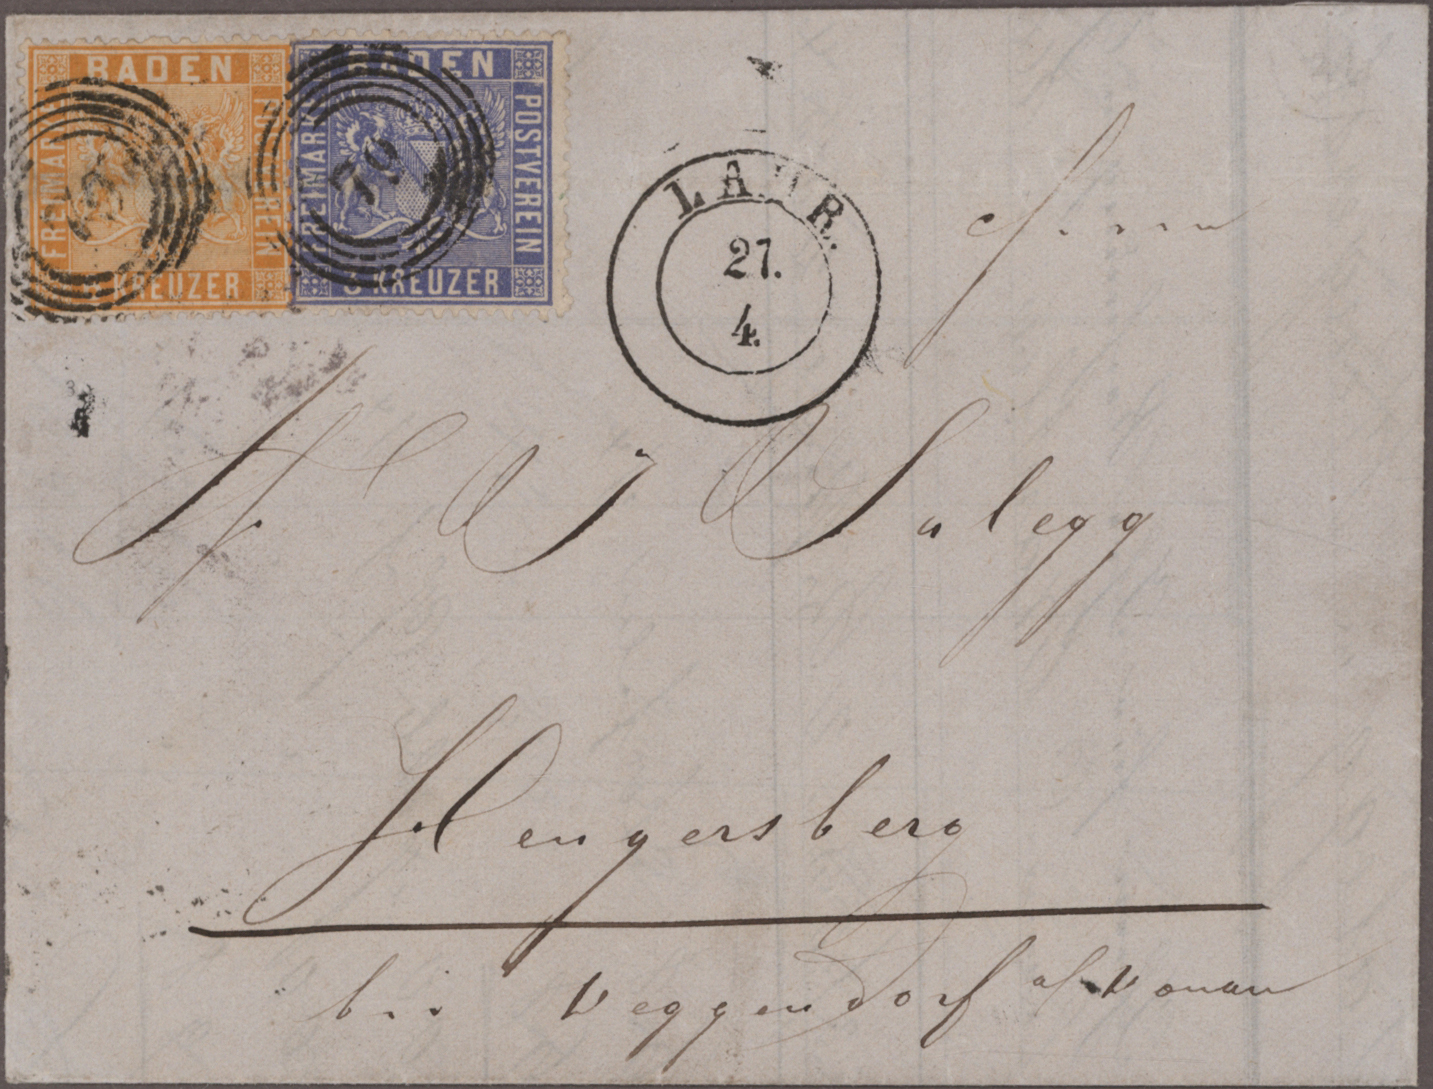 BADEN
FREIMARKE
POSTVEREIN
KREUZER
BADEN
FREIMARKE
POSTVEREIN
3 KREUZER
79
79
LAHR.
27.
4.
Herrn
J Salegg
Hengersberg
bei Deggendorf a/Donau